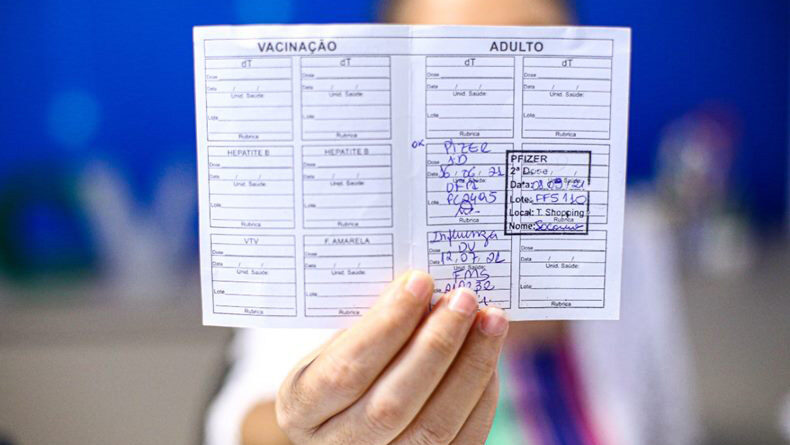 VACINAÇÃO
dT
Dose
Data / /
Unid. Saúde:
Lote
Rubrica
dT
Dose
Data / /
Unid. Saúde:
Lote
Rubrica
HEPATITE B
Dose
Data / /
Unid. Saúde:
Lote
Rubrica
HEPATITE B
Dose
Data / /
Unid. Saúde:
Lote
Rubrica
VTV
Dose
Data / /
Unid. Saúde:
Lote
Rubrica
F. AMARELA
Dose
Data / /
Unid. Saúde:
Lote
Rubrica
ADULTO
dT
Dose
Data / /
Unid. Saúde:
Lote
Rubrica
dT
Dose
Data / /
Unid. Saúde:
Lote
Rubrica
OK
PIZER
Dose
Data 06.21
Unid. Saúde:
Lote
Rubrica
PFIZER
2ª Dose
Data:
Lote:
Local: T. Shopping
Nome:
Influenza
DU
12.07.21
Unid. Saúde:
FMS
Dose
Data / /
Unid. Saúde:
Lote
Rubrica